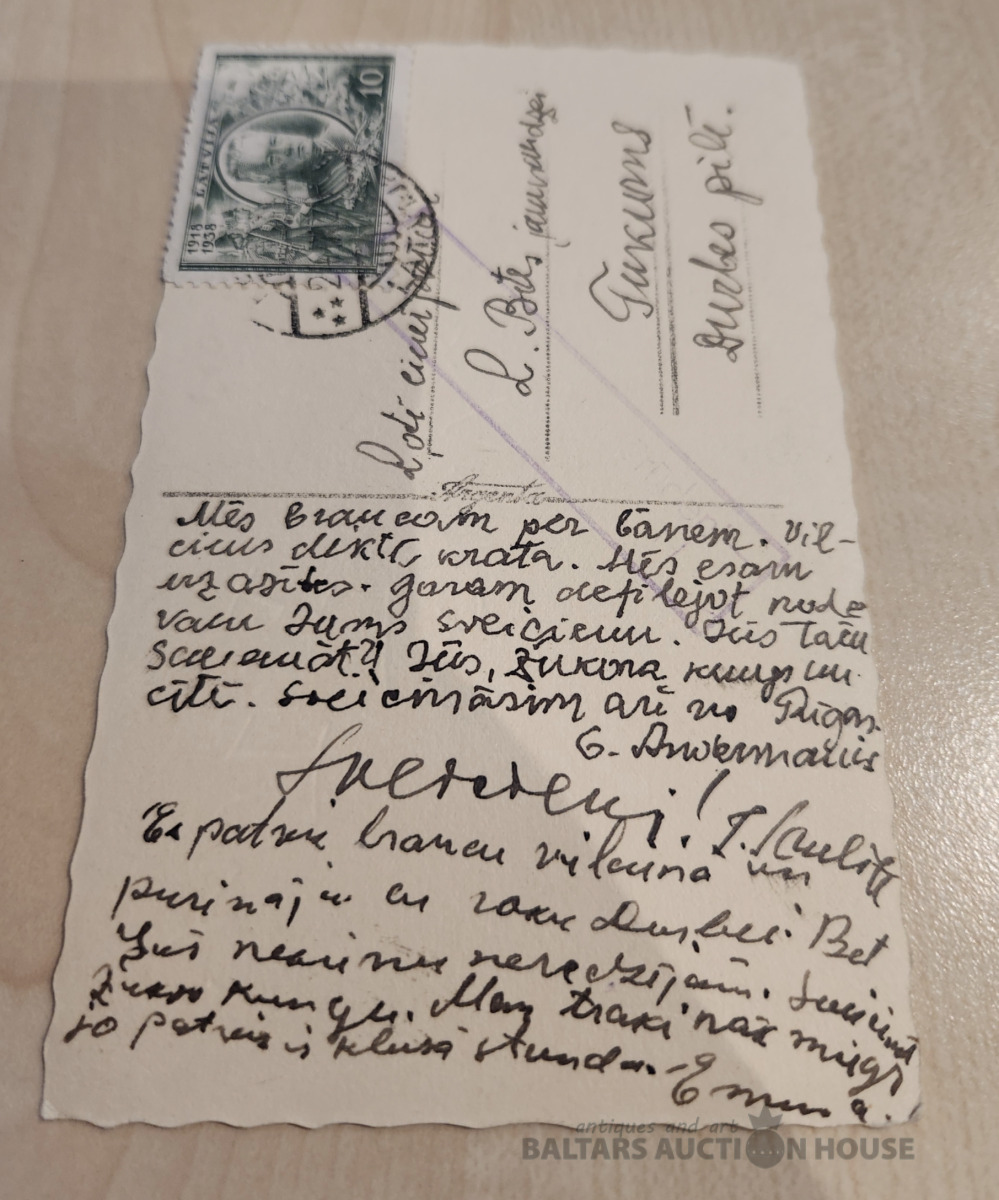 LATVIJA
10
1918
1938
Ļoti cien.
L. Bites jaunkundzei
Tukums
Durbes pilī.
Argenta
Mēs braucam per bāņem. Vil-
ciens dikti krata. Mēs esam
uz asītes. garam defilejot node
vam Jums sveicienu. Jūs taču
Saņemāt?! Jūs, Zukora kungs un
citi. Sveicināsim arī no Rīgas.
G. Andermanis
Sveicieni!
Es patreiz braucu vilcienā un
purināju ar roku Durbei. Bet
Jūs nevienu neredzējām. Sveiciniet
Zukor kungu. Man traki nāk miegs
jo patreiz ir klusā stunda. Emma.
antiques and art
BALTARS AUCTION HOUSE